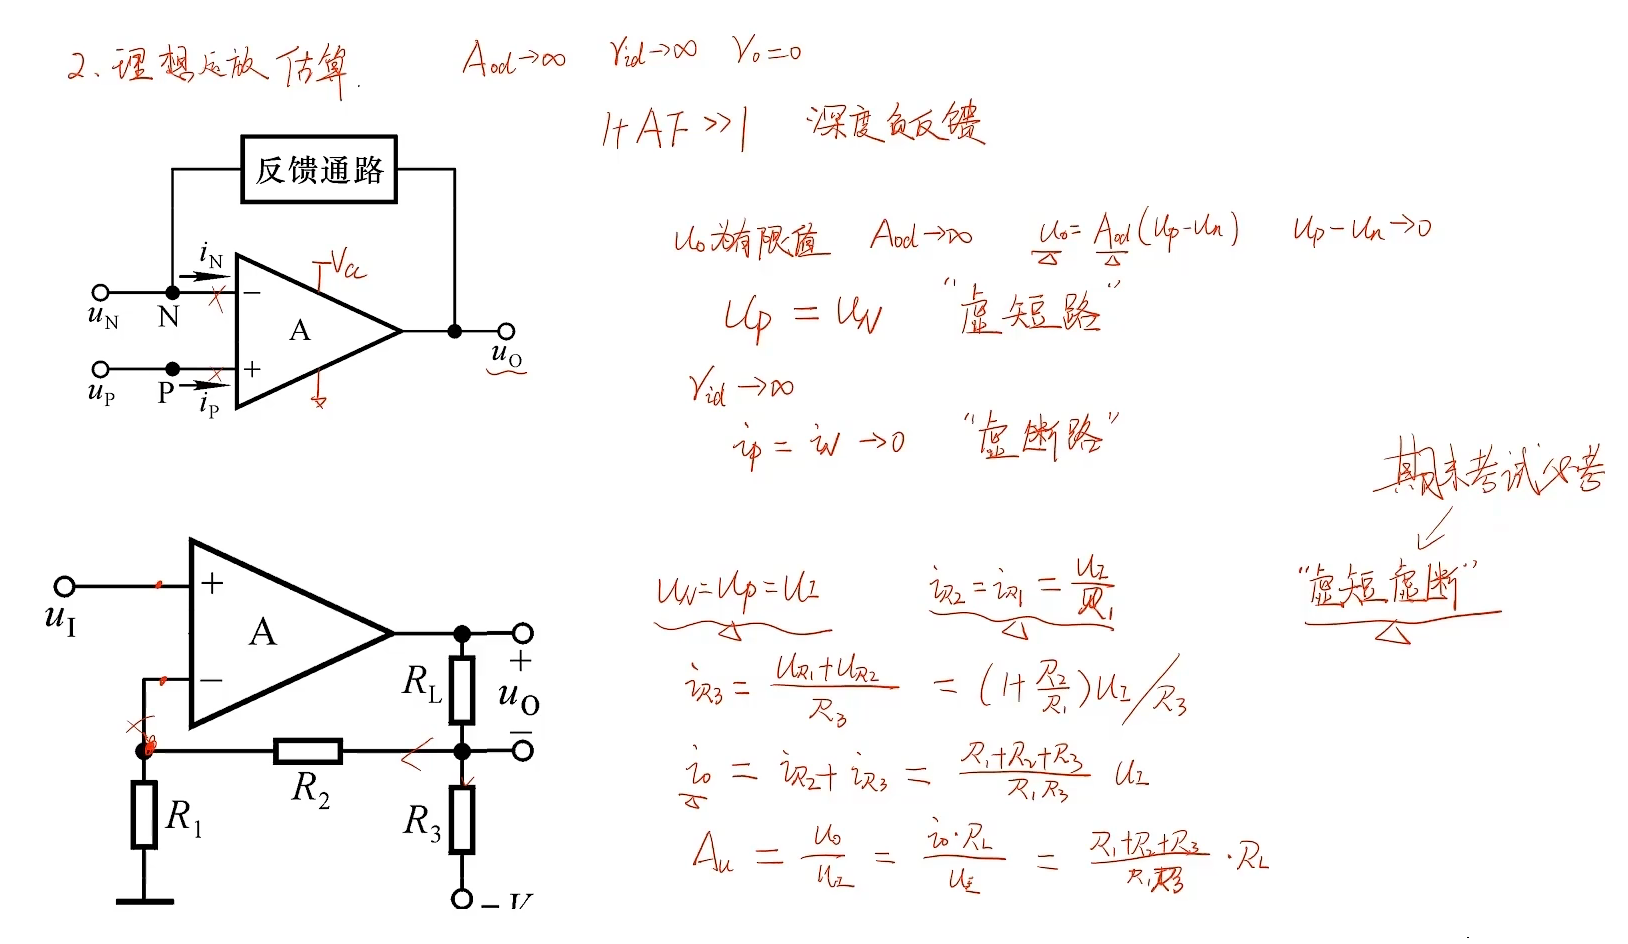 2、理想运放估算. Aod→∞ rid→∞ ro=0
1+AF>>1 深度负反馈
反馈通路
iN
VCC
uN N − A
uP P + uO
iP
uo为有限值 Aod→∞ uo=Aod(up-un) up-un→0
up = uN “虚短路”
rid→∞
ip = iN →0 “虚断路”
期末考试必考
“虚短虚断”
uI + A −
RL + uO −
R2
R1 R3
−V
uN=up=uI iR2=iR1=uI/R1
iR3 = (uR1+uR2)/R3 = (1+R2/R1)uI/R3
io = iR2+iR3 = (R1+R2+R3)/(R1R3) uI
Au = uo/uI = io·RL/uI = (R1+R2+R3)/(R1R3) ·RL